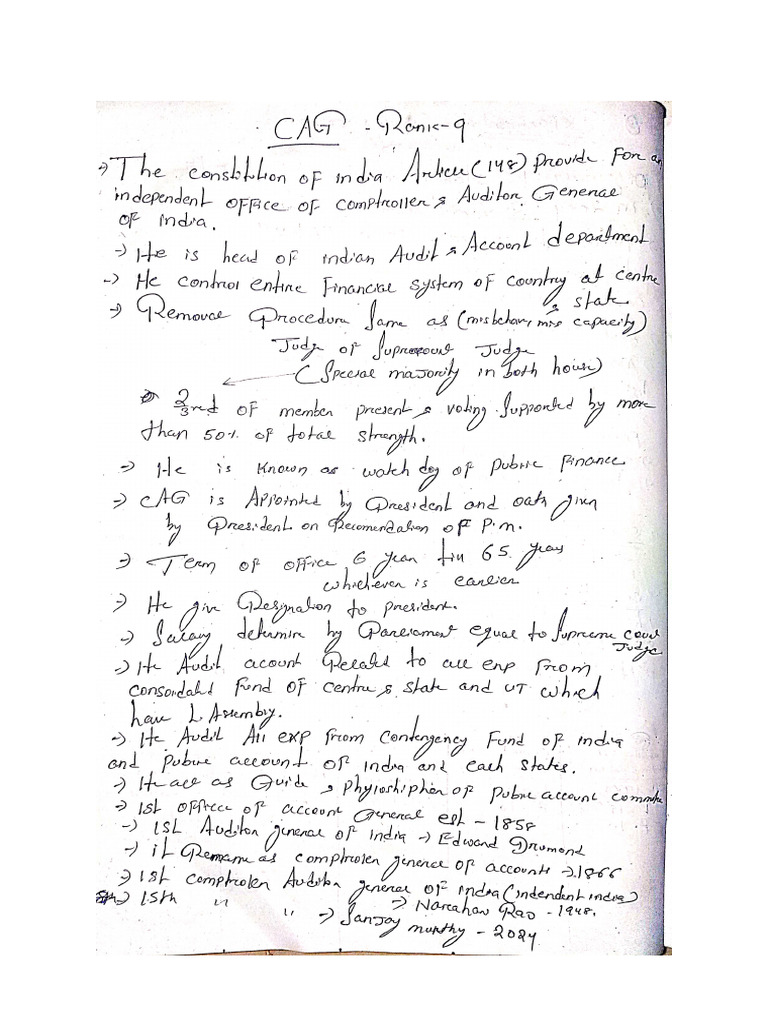 CAG - Rank-9
→ The constitution of india Article (148) provide for an
independent office of comptroller & Auditor General
of india.
→ He is head of indian Audit & Account department
→ He control entire Financial system of country at centre
& state
→ Removal Procedure Same as (misbehav, mis capacity)
Judge of Supreme cour Judge
(Special majority in both house)
→ 2/3 red of member present & voting supported by more
than 50% of total strength.
→ He is known as watch dog of public finance
→ CAG is Appiointed by President and oath given
by President on Recomendation of P.m.
→ Term of office 6 year till 65 years
whichever is earlier
→ He give Resignation to president.
→ Salary determine by Parliament equal to Supreme court
Judge
→ He Audit acount Related to all exp From
consoidated Fund of centre & state and UT which
have L Assembly.
→ He Audit All exp From Contengency Fund of india
and public account of india and each states.
→ He act as Guide & of public account committe
→ 1st office of account General est - 1858
→ 1st Auditor general of India → Edward Drumond
→ it Rename as comptrolen general of accounts → 1866
→ 1st comptrolen Auditor general of india (indendent india)
→ Narahari Rao - 1948.
→ 15th " " → Sanjoy
murthy - 2024